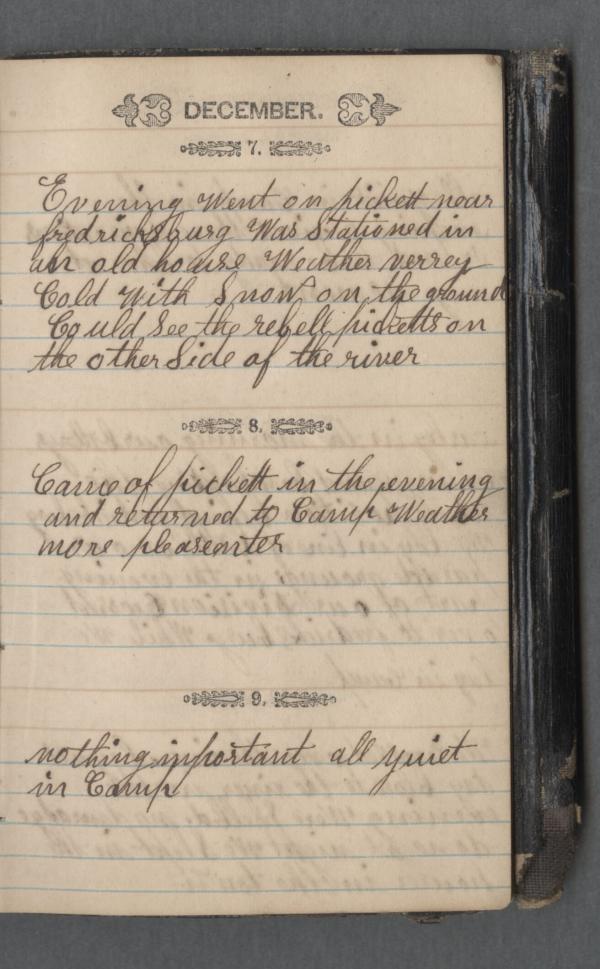 DECEMBER.
7.
Evening Went on pickett near
fredricksburg Was Stationed in
an old house Weather verrey
Cold With Snow on the ground
Could See the rebell picketts on
the other Side of the river
8.
Came of pickett in the evening
and returned to Camp Weather
more pleasenter
9.
nothing inportant all quiet
in Camp